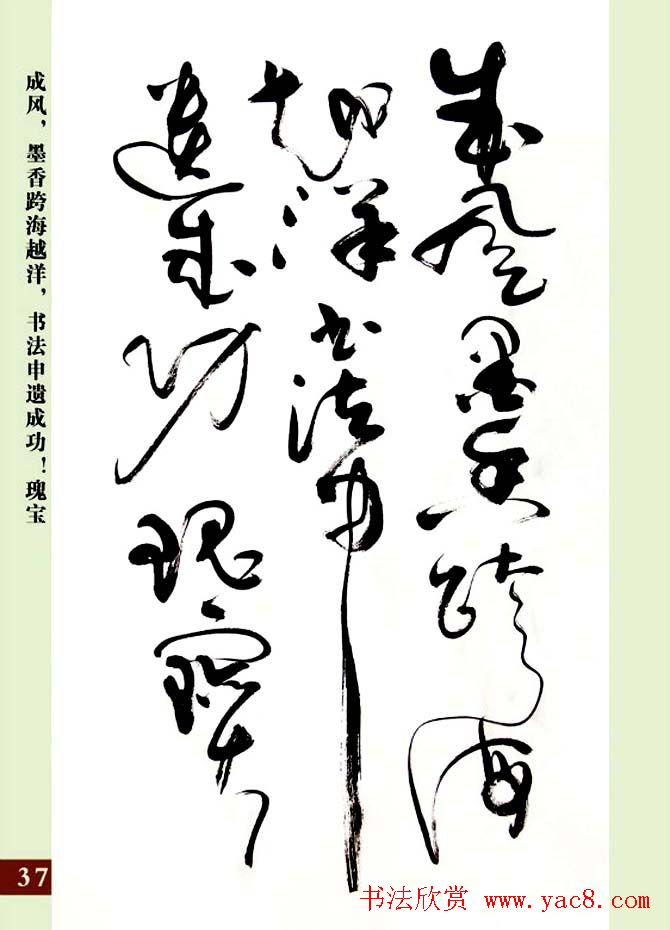 成風墨香跨海
越洋書法申
遺成功瑰寶
成风，墨香跨海越洋，书法申遗成功！瑰宝
37
书法欣赏 www.yac8.com